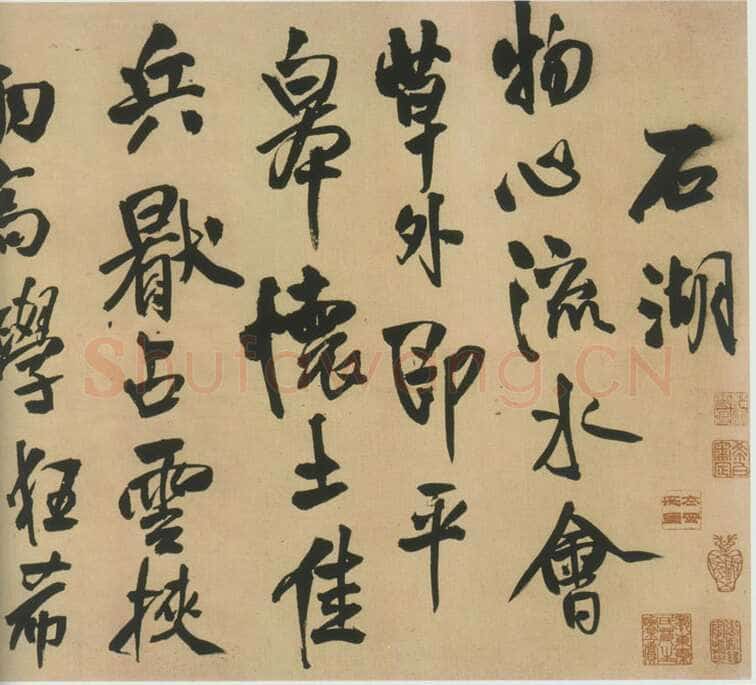 石湖
物心流水會
草外即平
皋懷土佳
兵猒占雲挾
高學狂希
Shufawang.CN